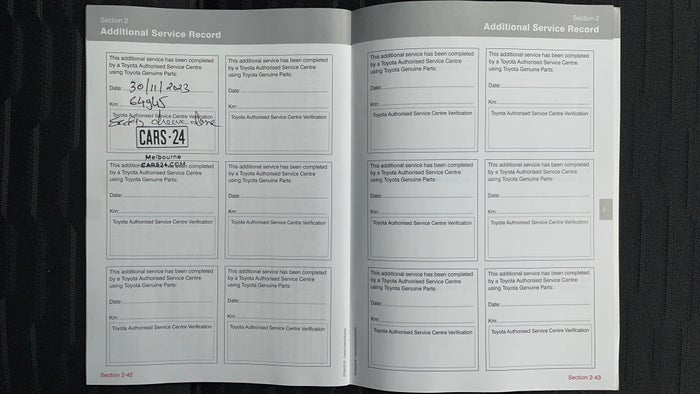 Section 2
Additional Service Record
This additional service has been completed
by a Toyota Authorised Service Centre
using Toyota Genuine Parts:
Date: 30/11/2023
Km: 64945
Toyota Authorised Service Centre Verification
done
CARS·24
Melbourne
CARS24.COM
This additional service has been completed
by a Toyota Authorised Service Centre
using Toyota Genuine Parts:
Date:
Km:
Toyota Authorised Service Centre Verification
This additional service has been completed
by a Toyota Authorised Service Centre
using Toyota Genuine Parts:
Date:
Km:
Toyota Authorised Service Centre Verification
This additional service has been completed
by a Toyota Authorised Service Centre
using Toyota Genuine Parts:
Date:
Km:
Toyota Authorised Service Centre Verification
This additional service has been completed
by a Toyota Authorised Service Centre
using Toyota Genuine Parts:
Date:
Km:
Toyota Authorised Service Centre Verification
This additional service has been completed
by a Toyota Authorised Service Centre
using Toyota Genuine Parts:
Date:
Km:
Toyota Authorised Service Centre Verification
Section 2-42
Section 2
Additional Service Record
This additional service has been completed
by a Toyota Authorised Service Centre
using Toyota Genuine Parts:
Date:
Km:
Toyota Authorised Service Centre Verification
This additional service has been completed
by a Toyota Authorised Service Centre
using Toyota Genuine Parts:
Date:
Km:
Toyota Authorised Service Centre Verification
This additional service has been completed
by a Toyota Authorised Service Centre
using Toyota Genuine Parts:
Date:
Km:
Toyota Authorised Service Centre Verification
This additional service has been completed
by a Toyota Authorised Service Centre
using Toyota Genuine Parts:
Date:
Km:
Toyota Authorised Service Centre Verification
This additional service has been completed
by a Toyota Authorised Service Centre
using Toyota Genuine Parts:
Date:
Km:
Toyota Authorised Service Centre Verification
This additional service has been completed
by a Toyota Authorised Service Centre
using Toyota Genuine Parts:
Date:
Km:
Toyota Authorised Service Centre Verification
2
Section 2-43